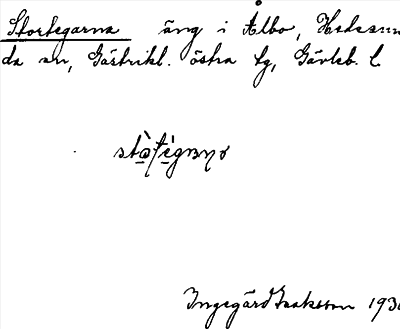 Stortegarna äng i Ålbo, Hedesun
da sn, Gästrikl. östra tg, Gävleb. l
Ingegärd Isaksson 193